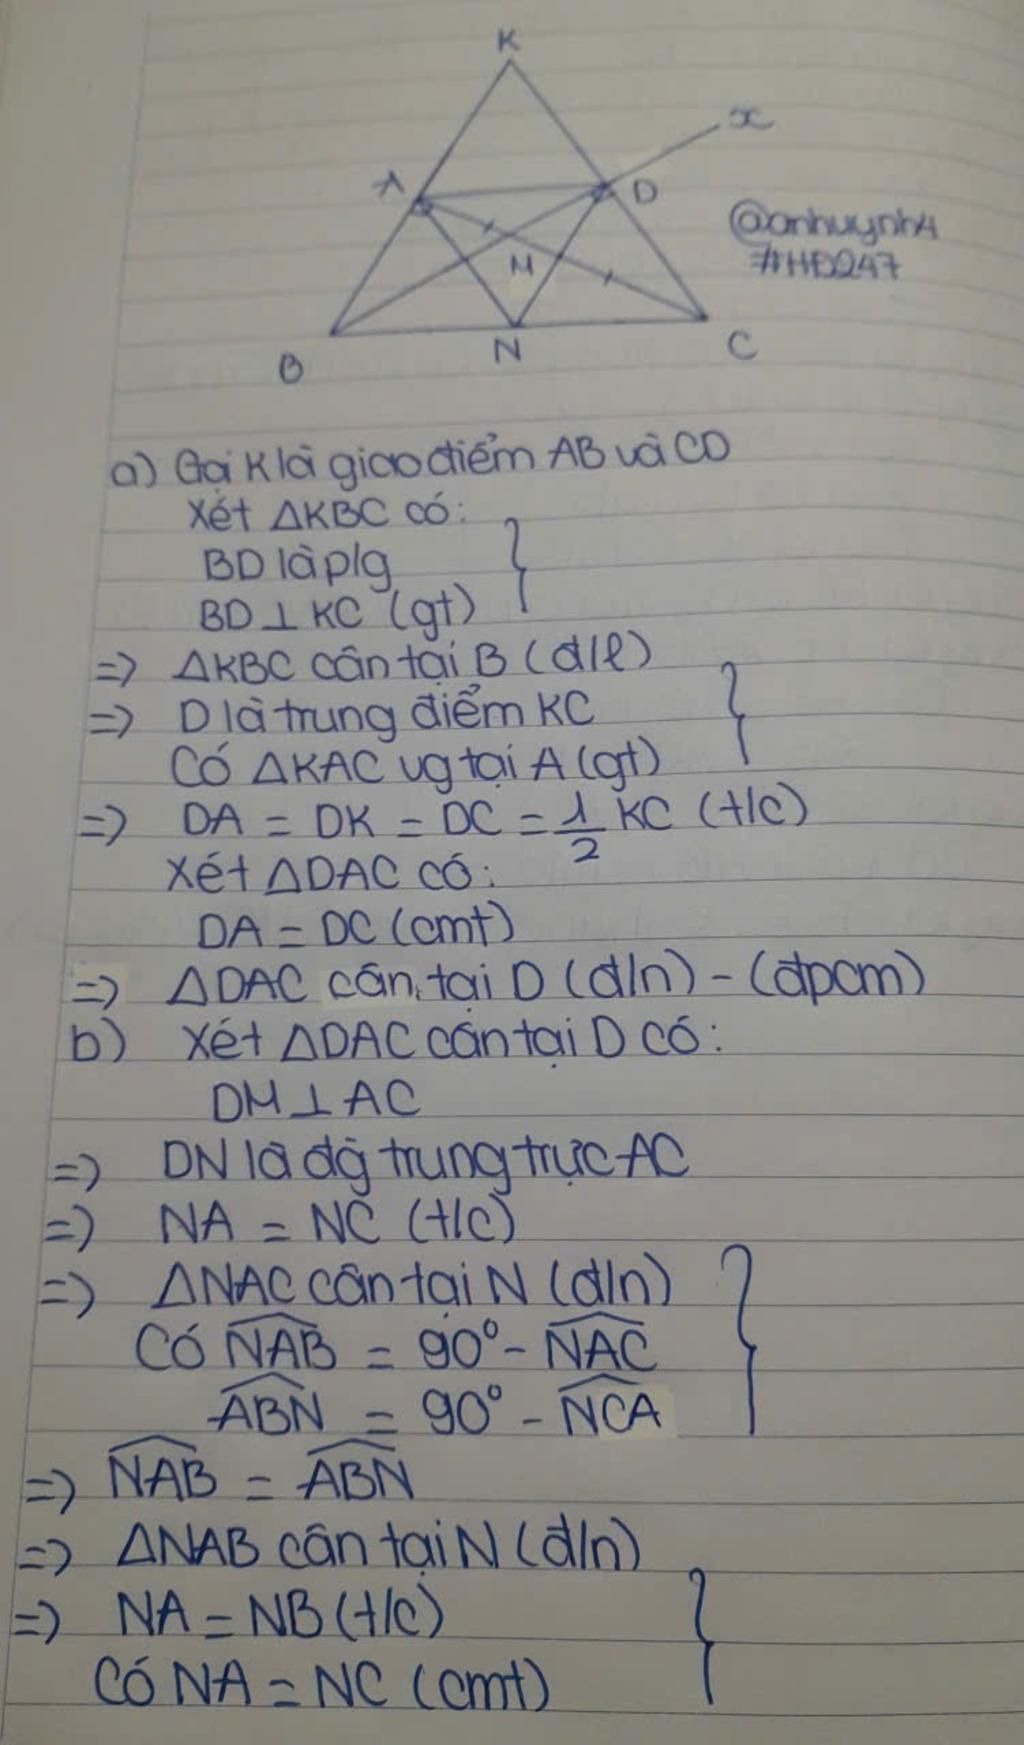 K
x
A
D
@anhuynh4
#HĐ247
M
B
N
C
a) Gọi K là giao điểm AB và CD
Xét ΔKBC có:
BD là p/g
BD ⊥ KC (gt)
=> ΔKBC cân tại B (đ/l)
=> D là trung điểm KC
Có ΔKAC vg tại A (gt)
=> DA = DK = DC = 1/2 KC (t/c)
Xét ΔDAC có:
DA = DC (cmt)
=> ΔDAC cân tại D (đ/n) - (đpcm)
b) Xét ΔDAC cân tại D có:
DM ⊥ AC
=> DN là đg trung trực AC
=> NA = NC (t/c)
=> ΔNAC cân tại N (đ/n)
Có \widehat{NAB} = 90° - \widehat{NAC}
\widehat{ABN} = 90° - \widehat{NCA}
=> \widehat{NAB} = \widehat{ABN}
=> ΔNAB cân tại N (đ/n)
=> NA = NB (t/c)
Có NA = NC (cmt)